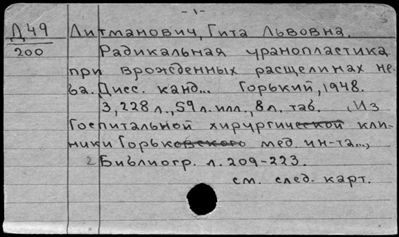 - 1 -
Д49 Литманович, Гита Львовна.
200 Радикальная уранопластика
при врожденных расщелинах не-
ба. Дисс. канд... Горький, 1948.
3, 228 л., 59 л. илл., 8 л. таб. (Из
Госпитальной хирургической кли-
ники Горьковского мед. ин-та..,
2 Библиогр. л. 209-223.
см. след. карт.